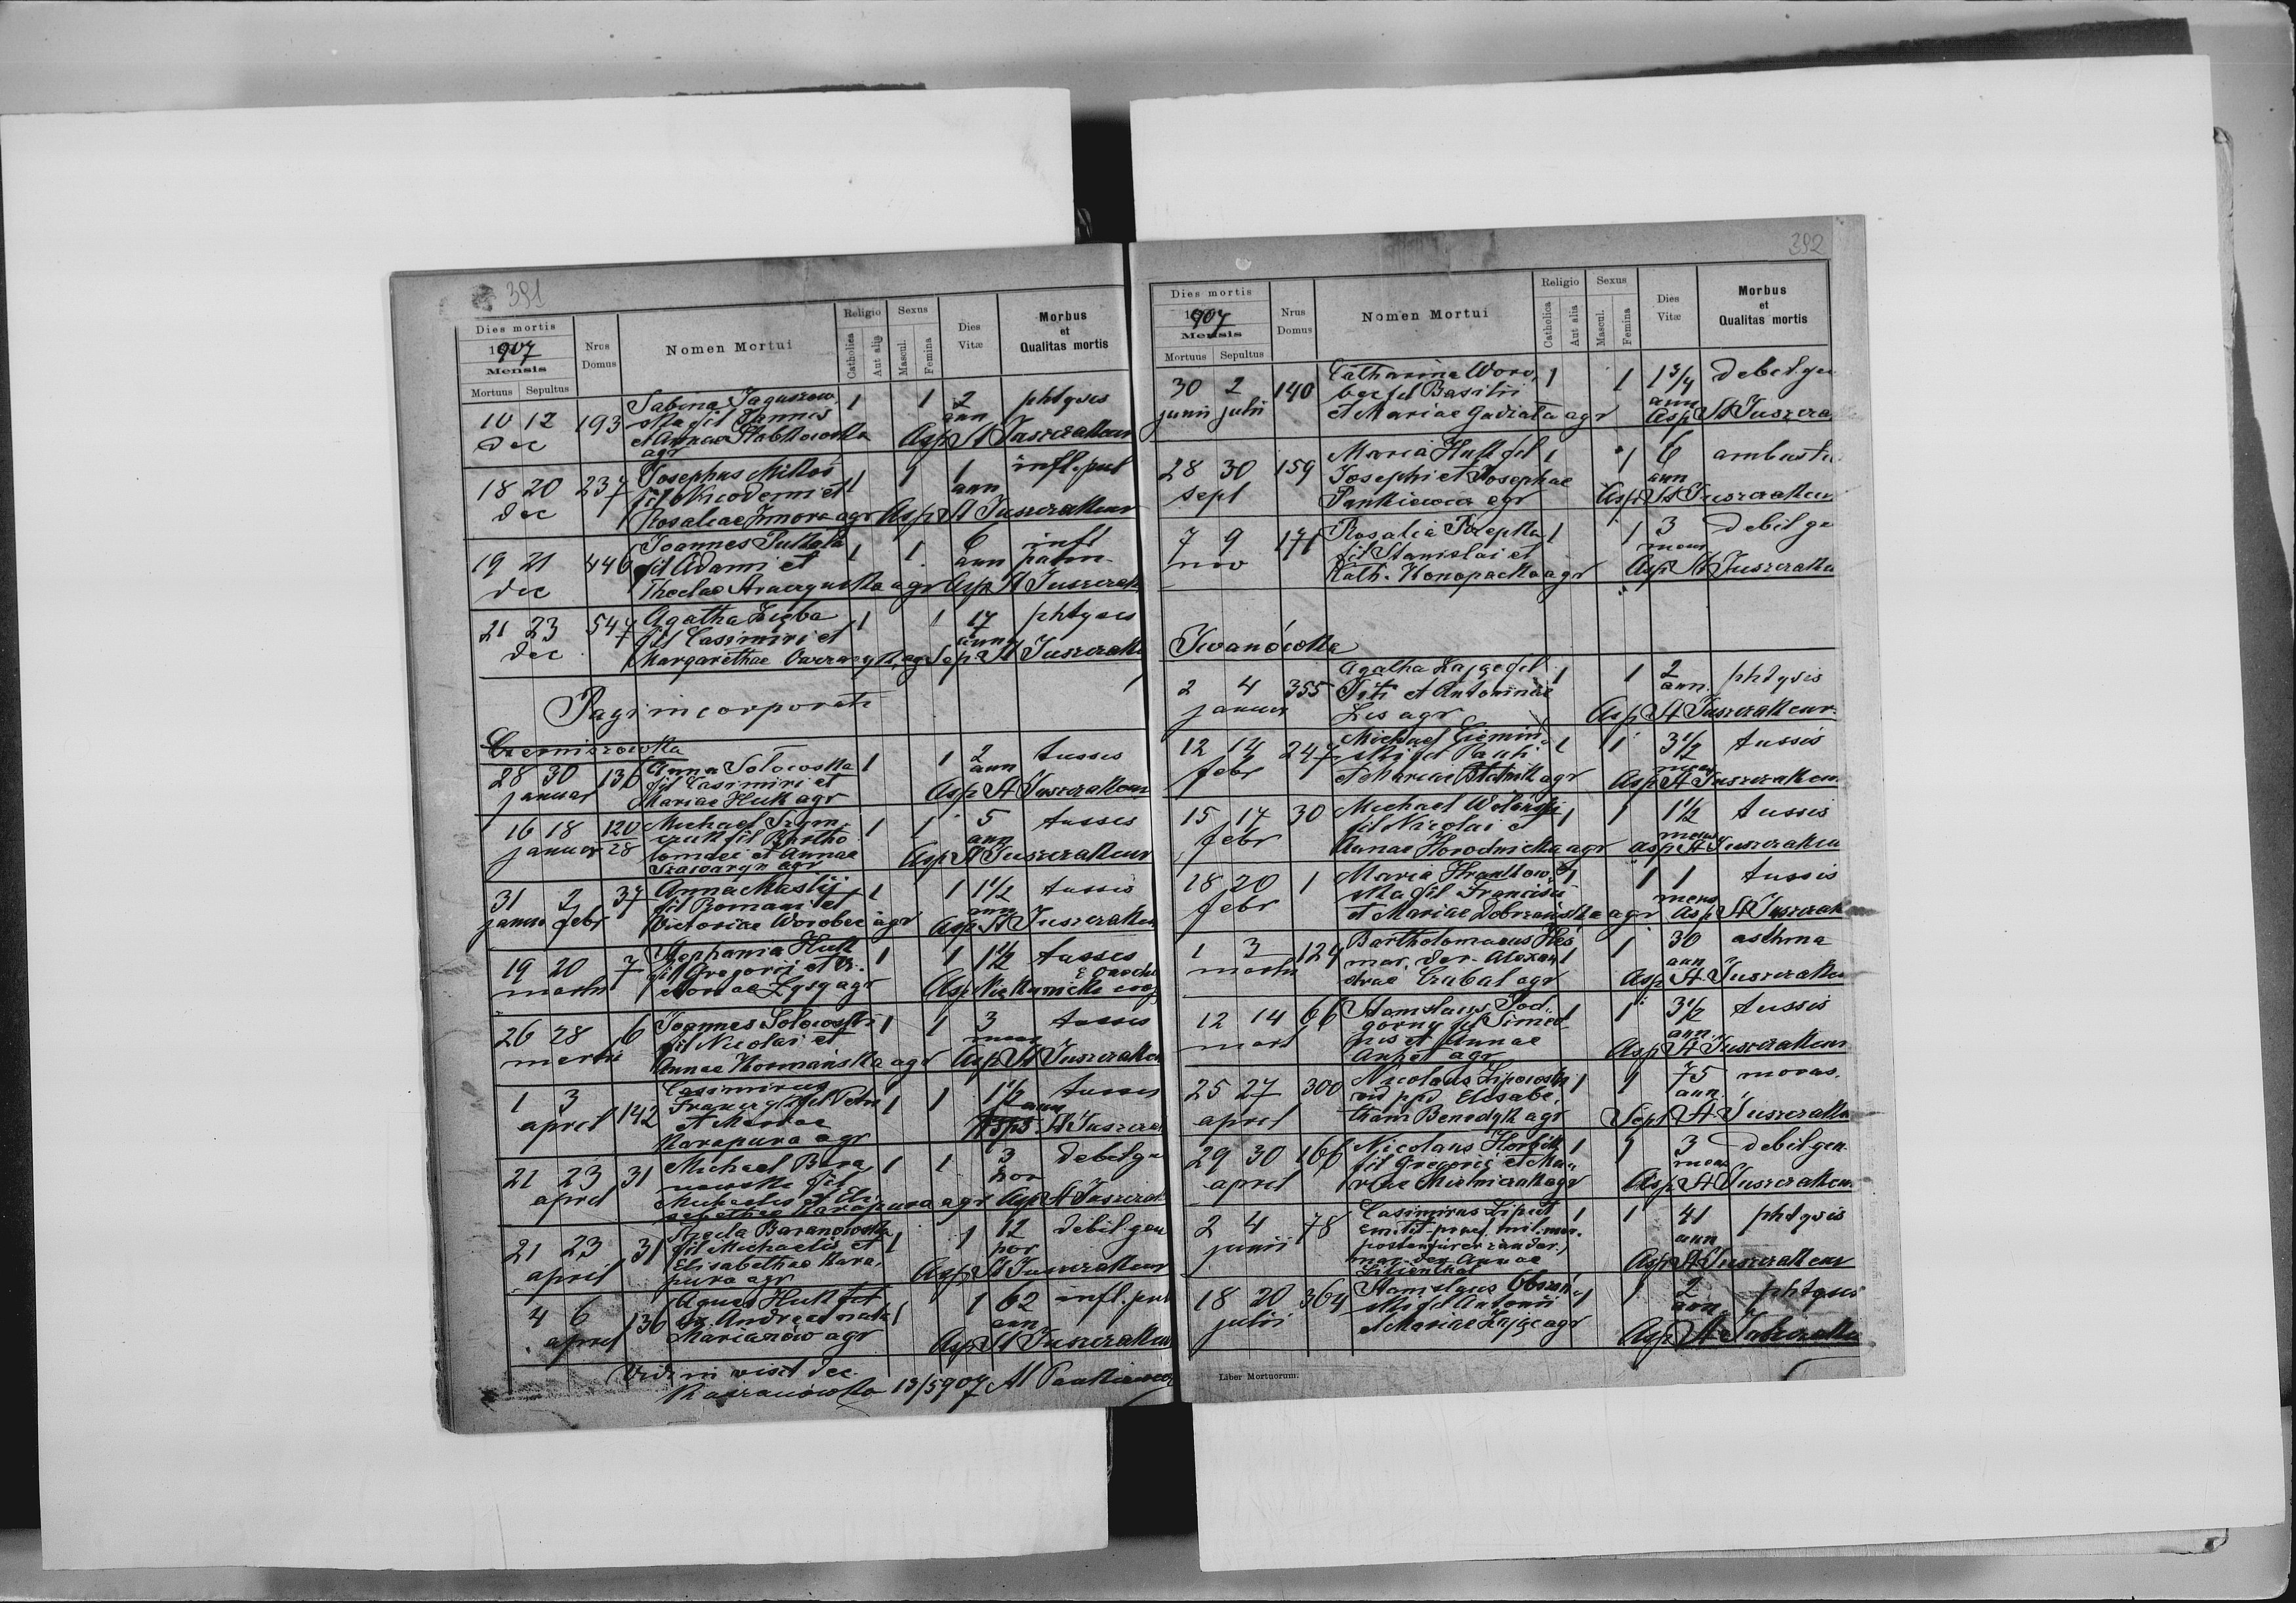 391
Dies mortis
1907
Mensis
Mortuus Sepultus
Nrus Domus
Nomen Mortui
Religio
Catholica Aut alia
Sexus
Mascul. Femina
Dies Vitæ
Morbus et Qualitas mortis
10 12 193 Sabina Jaguszew 1 1 2 phtysis
Dec ska fil Joannis ann
et Annae
agr Asp St Juszczakeur
18 20 237 Josephus Mikos 1 1 1 infl. pul
Dec fil Nicodemi et ann
Rosaliae Zmora agr Asp St Juszczakeur
19 21 446 Joannes Pukala 1 1 6 infl
dec fil Adami et ann palm
Theclae agr Asp St Juszczak
21 23 547 Agatha Zięba 1 1 17 phtysis
Dec fil Casimiri et ann
Margarethae agr Sep St Juszczak
Pagi incorporati
Czerniszowka
28 30 136 Anna Solowska 1 1 2 tussis
januar fil Casimiri et ann
Mariae Huk agr Asp St Juszczakeur
16 18 120 Michael Szym 1 1 5 tussis
januar 28 czuk fil Bartho ann
lomaei et Annae
Szawaryn agr Asp St Juszczakeur
31 2 37 Anna Maslij 1 1 1 1/2 tussis
januar febr fil Romani et ann
Victoriae Worobec agr Asp St Juszczakeur
19 20 7 Stephania Huk 1 1 1 1/2 tussis
martii fil Gregorii et Vi
ctoriae Łysy agr Asp
26 28 6 Joannes Solowski 1 1 3 tussis
martii fil Nicolai et mens
Annae Hormańska agr Asp St Juszczakeur
1 3 142 Casimirus 1 1 1 1/2 tussis
april fil Petri ann
et Mariae
Karapura agr Asp St Juszczak
21 23 31 Michael Bara 1 1 3 debil ge
april nowski fil hor
Michaelis et Eli
sabethae Karapura agr Asp St Juszczak
21 23 31 Aniela Baranowska 1 1 12 debil gen
april fil Michaelis et hor
Elisabethae Kara
pura agr Asp St Juszczakeur
4 6 136 Agnes Huk fil 1 1 62 infl. pul
april Andreae nata ann
Marianów agr Asp St Juszczakeur
Vidi in visit dec
Kaczanówka 13/5 907 M Pankiewicz
392
Dies mortis
1907
Mensis
Mortuus Sepultus
Nrus Domus
Nomen Mortui
Religio
Catholica Aut alia
Sexus
Mascul. Femina
Dies Vitæ
Morbus et Qualitas mortis
30 2 140 Catharina Woro 1 1 1 3/4 debil. gen
junii julii bec fil Basilii ann
et Mariae Gadzała agr Asp St Juszcza
28 30 159 Maria Huk fil 1 1 6 ambustio
sept Josephi et Josephae ann
Pankiewicz agr Asp St Juszczakeur
7 9 171 Rosalia Rzepka 1 1 3 debil ge
nov fil Stanislai et mens
Kath. Konopacka agr Asp St Juszczak
Iwanówka
2 4 355 Agatha Zając fil 1 1 2 phtysis
januar Titi et Antoninae ann.
Lis agr Asp St Juszczakeur
12 14 247 Michael Ciemin 1 1 3 1/2 tussis
febr ski fil Pauli mens
et Mariae agr Asp St Juszczakeur
15 17 30 Michael Woloński 1 1 1 1/2 tussis
febr fil Nicolai et mens
Annae Horodnicka agr Asp St Juszczakeu
18 20 1 Maria Hrankow 1 1 1 tussis
febr ska fil Francisci mens
et Mariae Dobrzańska agr Asp St Juszczak
1 3 124 Bartholomaeus Kłos 1 1 30 asthma
martii mar. der. Alexan ann
drae Cubal agr Asp St Juszczakeu
12 14 66 Stanislaus Pod 1 1 3 1/2 tussis
mart górny fil Simeo ann
nis et Annae
agr Asp St Juszczakeur
25 27 300 Nicolaus Lipowski 1 1 75 moras.
april vid pp Elisabe ann.
tham Benedyk agr Sep St Juszczak
29 30 166 Nicolaus Horbik 1 1 3 debil gen
april fil Gregorii et Ma mens
riae Mielniczak agr Asp St Juszczakeur
2 4 78 Casimirus Lipiet 1 1 41 phtysis
junii emit. mil. ann
postenfürer żandar.
mar. der. Annae
Lilienthal Asp St Juszczakeur
18 20 364 Stanislaus Obszań 1 1 2 phtysis
julii ski fil Antonii ann
et Mariae Zając agr Asp St Juszczak
Liber Mortuorum.